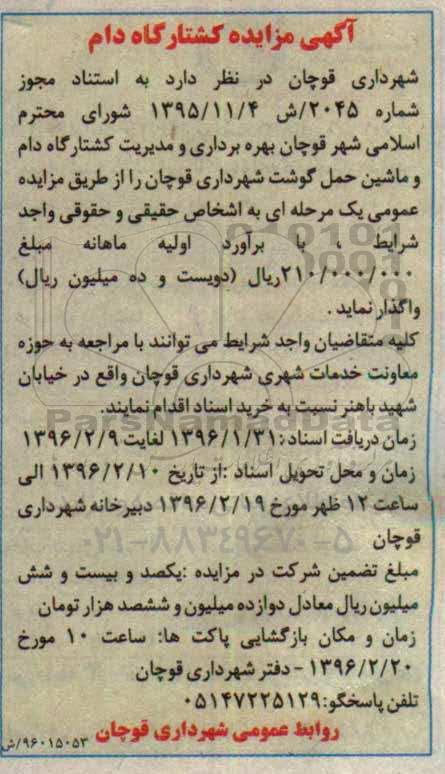 آگهی مزایده کشتارگاه دام
شهرداری قوچان در نظر دارد به استناد مجوز
شماره ۲۰۴۵/ش ۱۳۹۵/۱۱/۴ شورای محترم
اسلامی شهر قوچان بهره برداری و مدیریت کشتارگاه دام
و ماشین حمل گوشت شهرداری قوچان را از طریق مزایده
عمومی یک مرحله ای به اشخاص حقیقی و حقوقی واجد
شرایط ، با برآورد اولیه ماهانه مبلغ
۲۱۰/۰۰۰/۰۰۰ریال (دویست و ده میلیون ریال)
واگذار نماید .
کلیه متقاضیان واجد شرایط می توانند با مراجعه به حوزه
معاونت خدمات شهری شهرداری قوچان واقع در خیابان
شهید باهنر نسبت به خرید اسناد اقدام نمایند.
ParsNamadData
زمان دریافت اسناد :۱۳۹۶/۱/۳۱ لغایت ۱۳۹۶/۲/۹
زمان و محل تحویل اسناد :از تاریخ ۱۳۹۶/۲/۱۰ الی
ساعت ۱۲ ظهر مورخ ۱۳۹۶/۲/۱۹ دبیرخانه شهرداری
قوچان
۰۲۱-۸۸۳۴۹۶۷۰-۵
مبلغ تضمین شرکت در مزایده :یکصد و بیست و شش
میلیون ریال معادل دوازده میلیون و ششصد هزار تومان
زمان و مکان بازگشایی پاکت ها: ساعت ۱۰ مورخ
۱۳۹۶/۲/۲۰ - دفتر شهرداری قوچان
تلفن پاسخگو:۰۵۱۴۷۲۲۵۱۲۹
روابط عمومی شهرداری قوچان
۹۶۰۱۵۰۵۳/ش